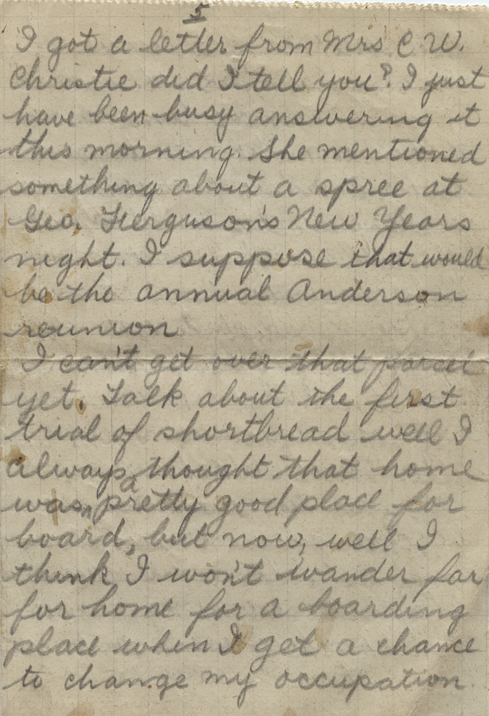 5
I got a letter from Mrs C.W.
Christie did I tell you? I just
have been busy answering it
this morning. She mentioned
something about a spree at
Geo. Ferguson's New Years
night. I suppose that would
be the annual Anderson
reunion
I can't get over that parcel
yet. Talk about the first
trial of shortbread well I
always thought that home
was a pretty good place for
board, but now, well I
think I won't wander far
for home for a boarding
place when I get a chance
to change my occupation